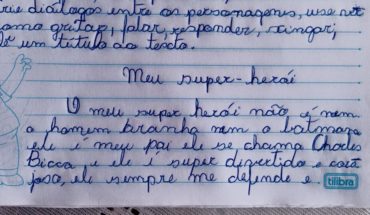 rie diálogos entre os personagens, use
como gritar, falar, responder, xingar,
um título do texto.
Meu super-herói
O meu super herói não é nem
o homem aranha nem o batman
ele é meu pai ele se chama
Bicca, e ele é super divertido e
ele sempre me defende e
tilibra